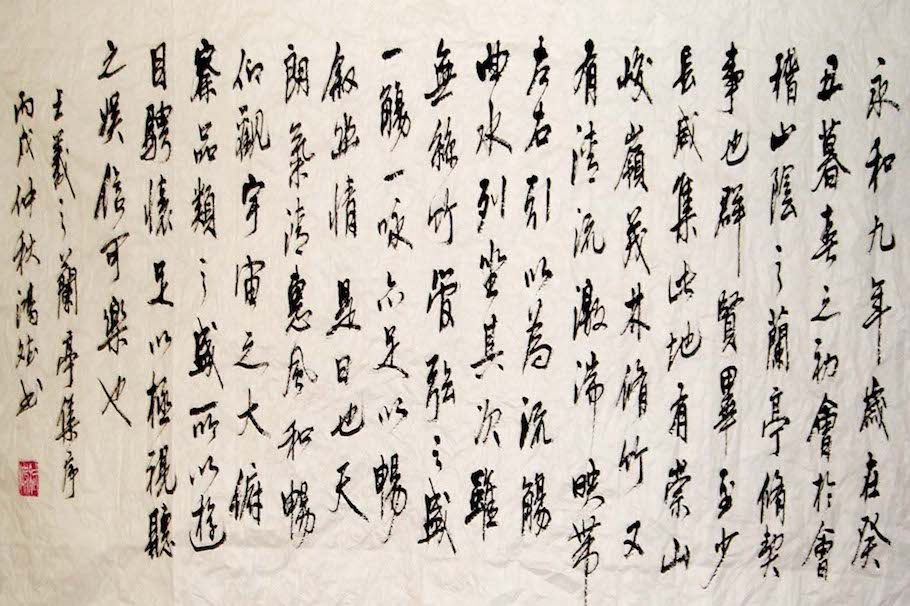 永和九年歲在癸
丑暮春之初會於會
稽山陰之蘭亭脩契
事也群賢畢至少
長咸集此地有崇山
峻嶺茂林脩竹又
有清流激湍映帶
左右引以為流觴
曲水列坐其次雖
無絲竹管弦之盛
一觴一咏亦足以暢
敘幽情是日也天
朗氣清惠風和暢
仰觀宇宙之大俯
察品類之盛所以遊
目騁懷足以極視聽
之娛信可樂也
王羲之蘭亭集序
丙戌仲秋